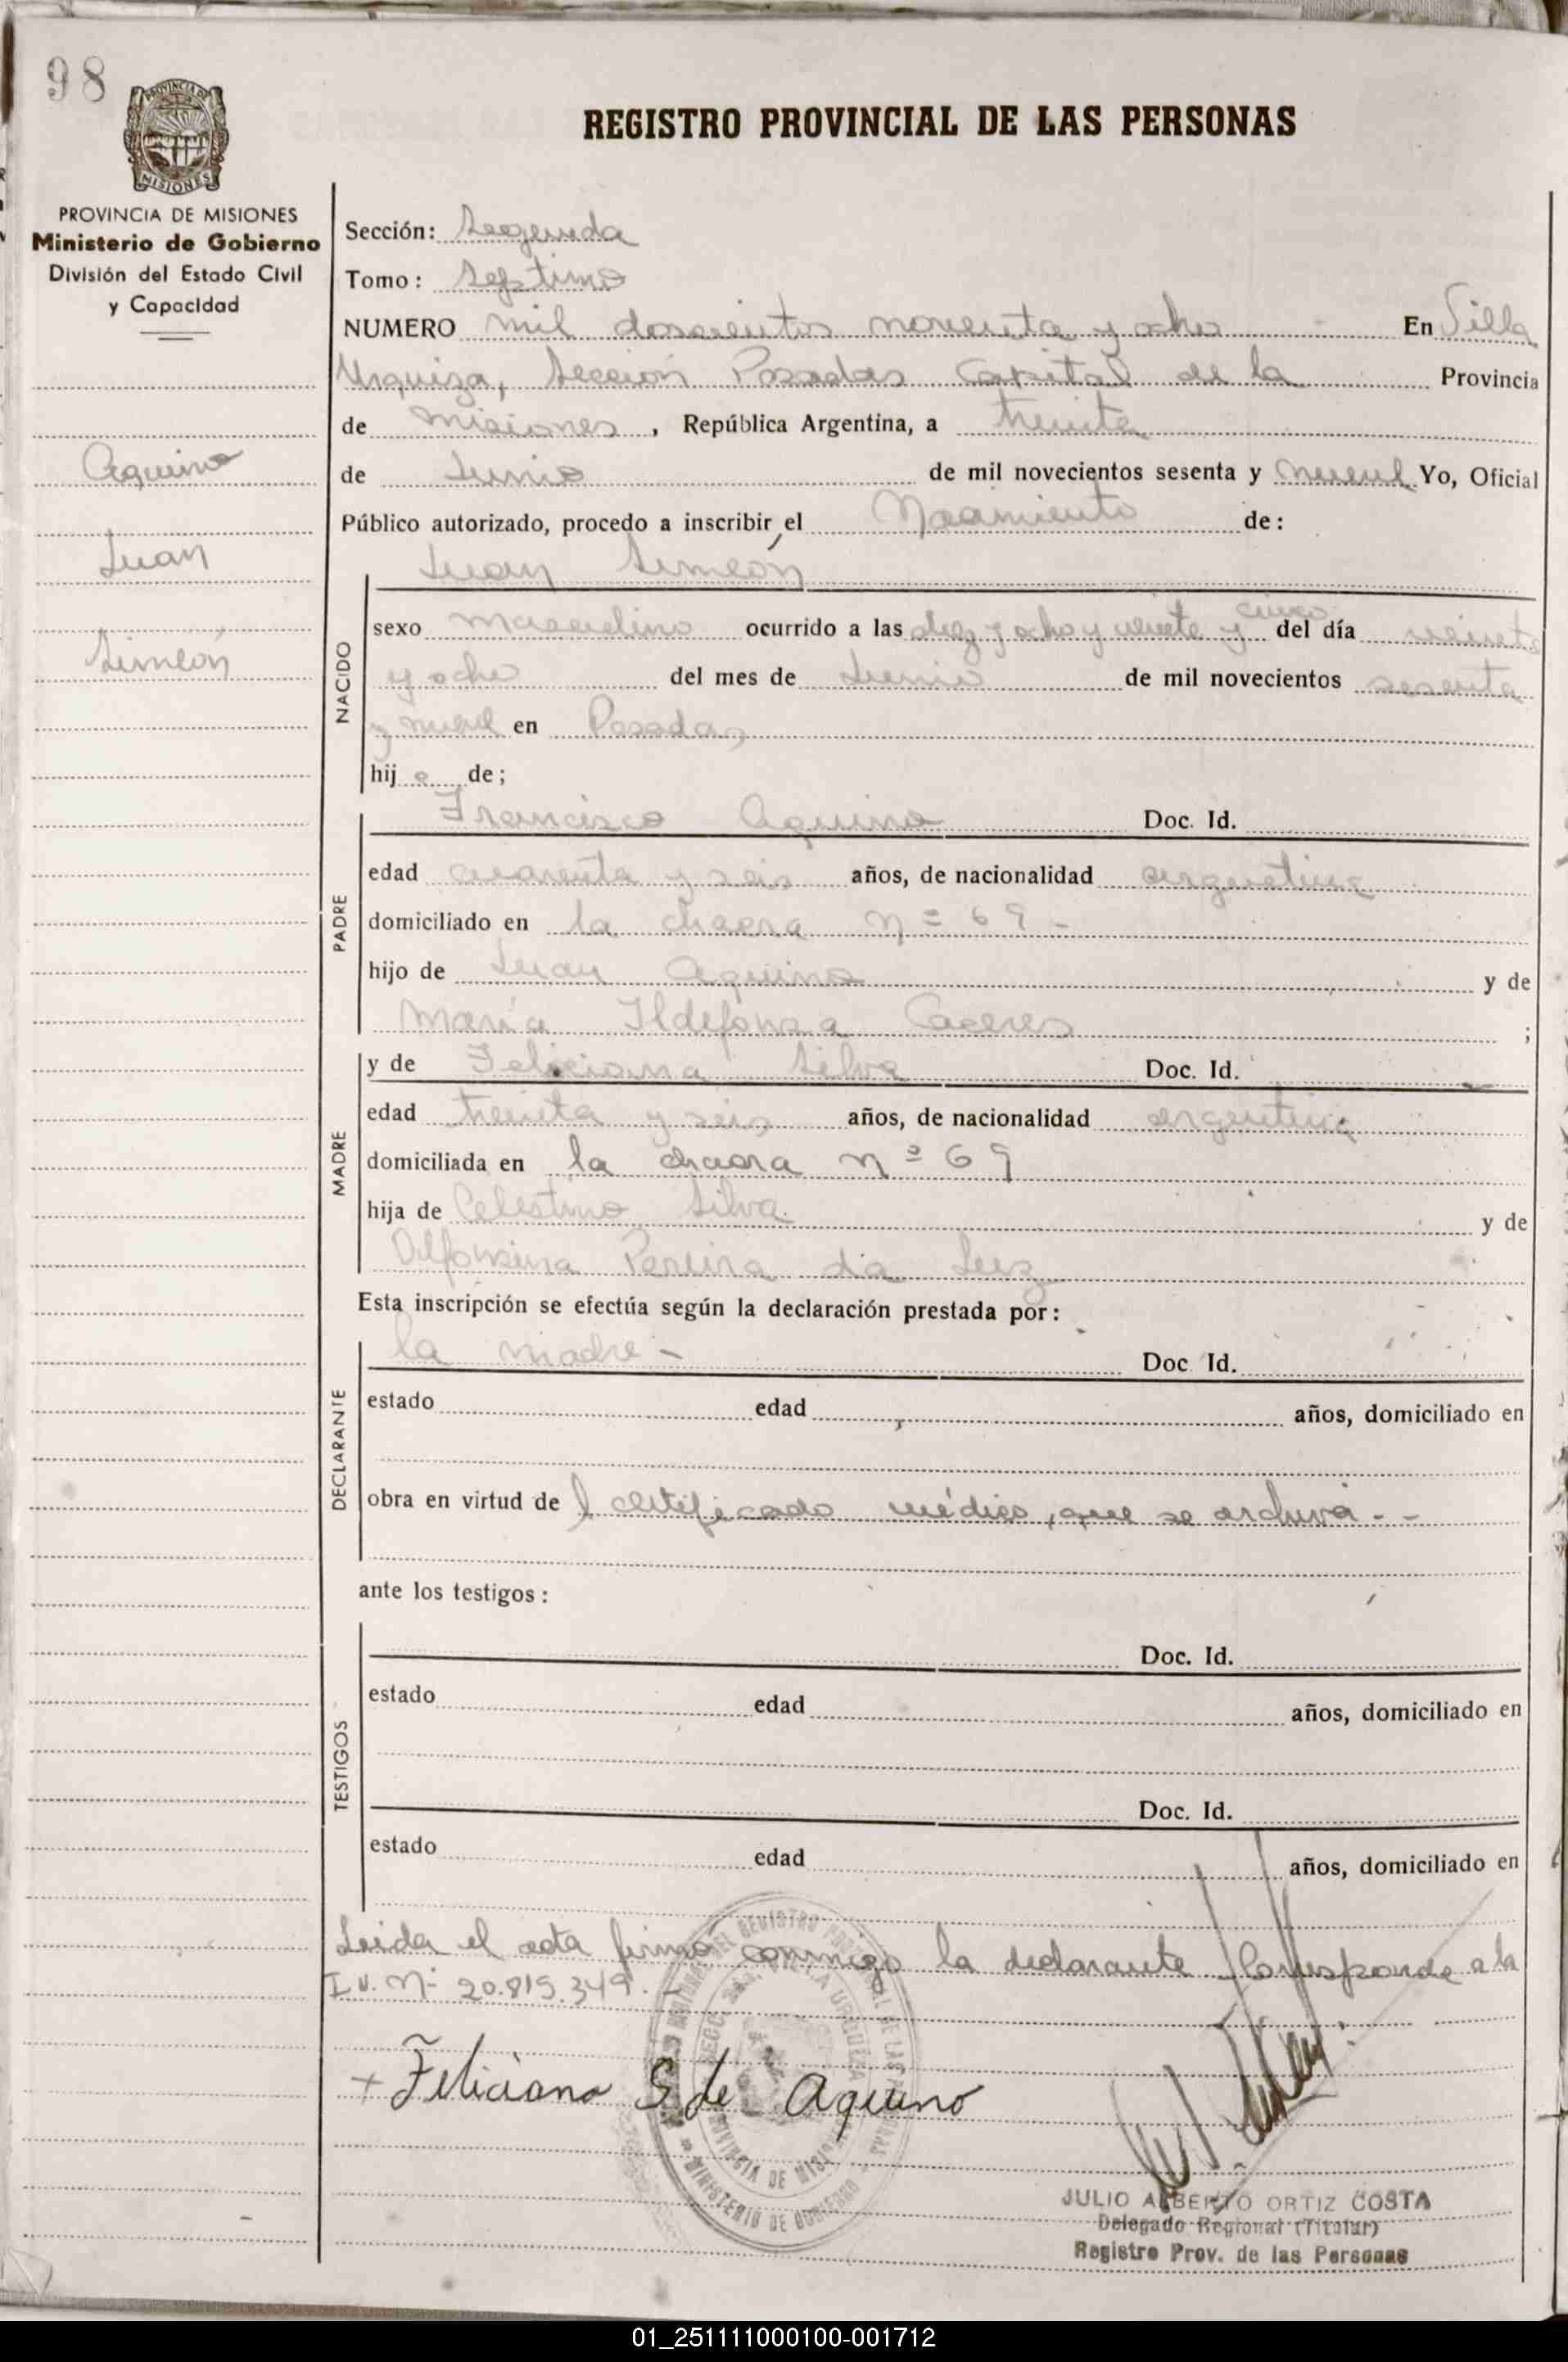 98
PROVINCIA DE MISIONES
PROVINCIA DE MISIONES
Ministerio de Gobierno
División del Estado Civil
y Capacidad
Aquino
Juan
Simeón
REGISTRO PROVINCIAL DE LAS PERSONAS
Sección: Segunda
Tomo: Septimo
NUMERO mil doscientos noventa y ocho En Villa
Urquiza, Sección Posadas Capital de la Provincia
de Misiones, República Argentina, a treinta
de Junio de mil novecientos sesenta y nueve Yo, Oficial
Público autorizado, procedo a inscribir el Nacimiento de:
Juan Simeón
NACIDO
sexo masculino ocurrido a las diez y ocho y veinte y cinco del día veinte
y ocho del mes de Junio de mil novecientos sesenta
y nueve en Posadas
hijo de;
PADRE
Francisco Aquino Doc. Id.
edad cuarenta y seis años, de nacionalidad argentina
domiciliado en la chacra nº 69 -
hijo de Juan Aquino y de
María Ildefonsa Caceres ;
MADRE
y de Feliciana Silva Doc. Id.
edad treinta y seis años, de nacionalidad argentina
domiciliada en la chacra nº 69
hija de Celestino Silva y de
Alfonsina Pereira da Luz
Esta inscripción se efectúa según la declaración prestada por:
DECLARANTE
la madre - Doc. Id.
estado edad años, domiciliado en
obra en virtud del certificado médico, que se archiva. - -
ante los testigos:
TESTIGOS
Doc. Id.
estado edad años, domiciliado en
Doc. Id.
estado edad años, domiciliado en
Leida el acta firmó conmigo la declarante. Corresponde a la
nº 20.819.349. -
+ Feliciana S. de Aquino
MINISTERIO DE GOBIERNO
PROVINCIA DE MISIONES
JULIO ALBERTO ORTIZ COSTA
Delegado Regional (Titular)
Registro Prov. de las Personas
01_251111000100-001712